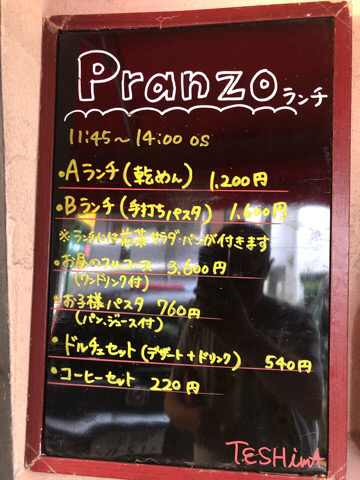 Pranzo ランチ
11:45〜14:00 OS
・Aランチ(乾めん) 1.200円
・Bランチ(手打ちパスタ) 1.600円
※ランチには前菜・サラダ・パンが付きます
・お昼のフルコース 3.600円
(ワンドリンク付)
・お子様パスタ 760円
(パン.ジュース付)
・ドルチェセット(デザート+ドリンク) 540円
・コーヒーセット 220円
TESHimA